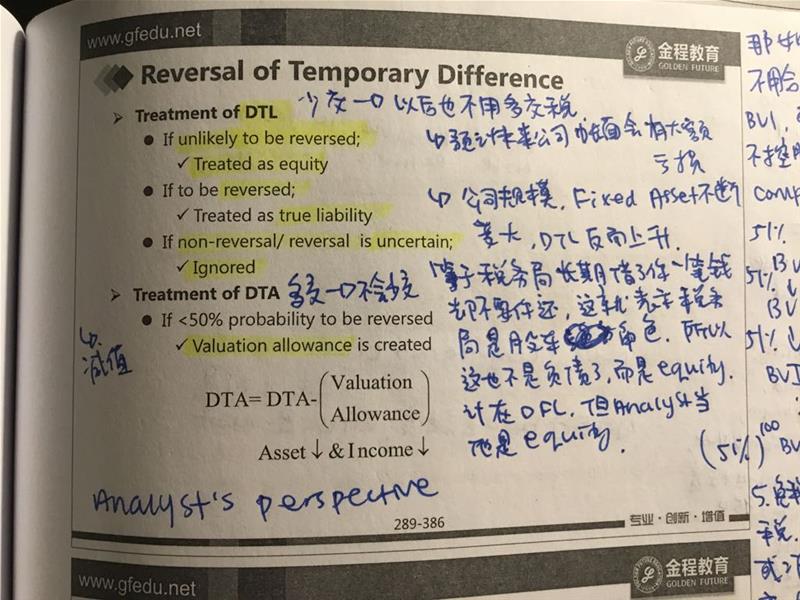 www.gfedu.net
金程教育
GOLDEN FUTURE
Reversal of Temporary Difference
Treatment of DTL
少交一口 以后也不用多交税
If unlikely to be reversed;
Treated as equity
预计未来公司帐面会有大额
亏损
If to be reversed;
Treated as true liability
公司规模, Fixed Asset不断
变大, DTL反而上升.
If non-reversal/ reversal is uncertain;
Ignored
等于税务局长期借了你一笔钱
却不要你还, 这就表示税务
局是股东 角色. 所以
这也不是负债了, 而是equity.
计在DFL, 但Analyst当
他是equity.
Treatment of DTA
多交一口
If <50% probability to be reversed
Valuation allowance is created
减值
DTA= DTA-(Valuation
Allowance)
Asset ↓ & Income ↓
Analyst's perspective
289-386
专业·创新·增值
不用合
BVI,
51%
51% ↓
BV
51% ↓
BVI
(51%)¹⁰⁰ BV
5.
www.gfedu.net
金程教育
GOLDEN FUTURE